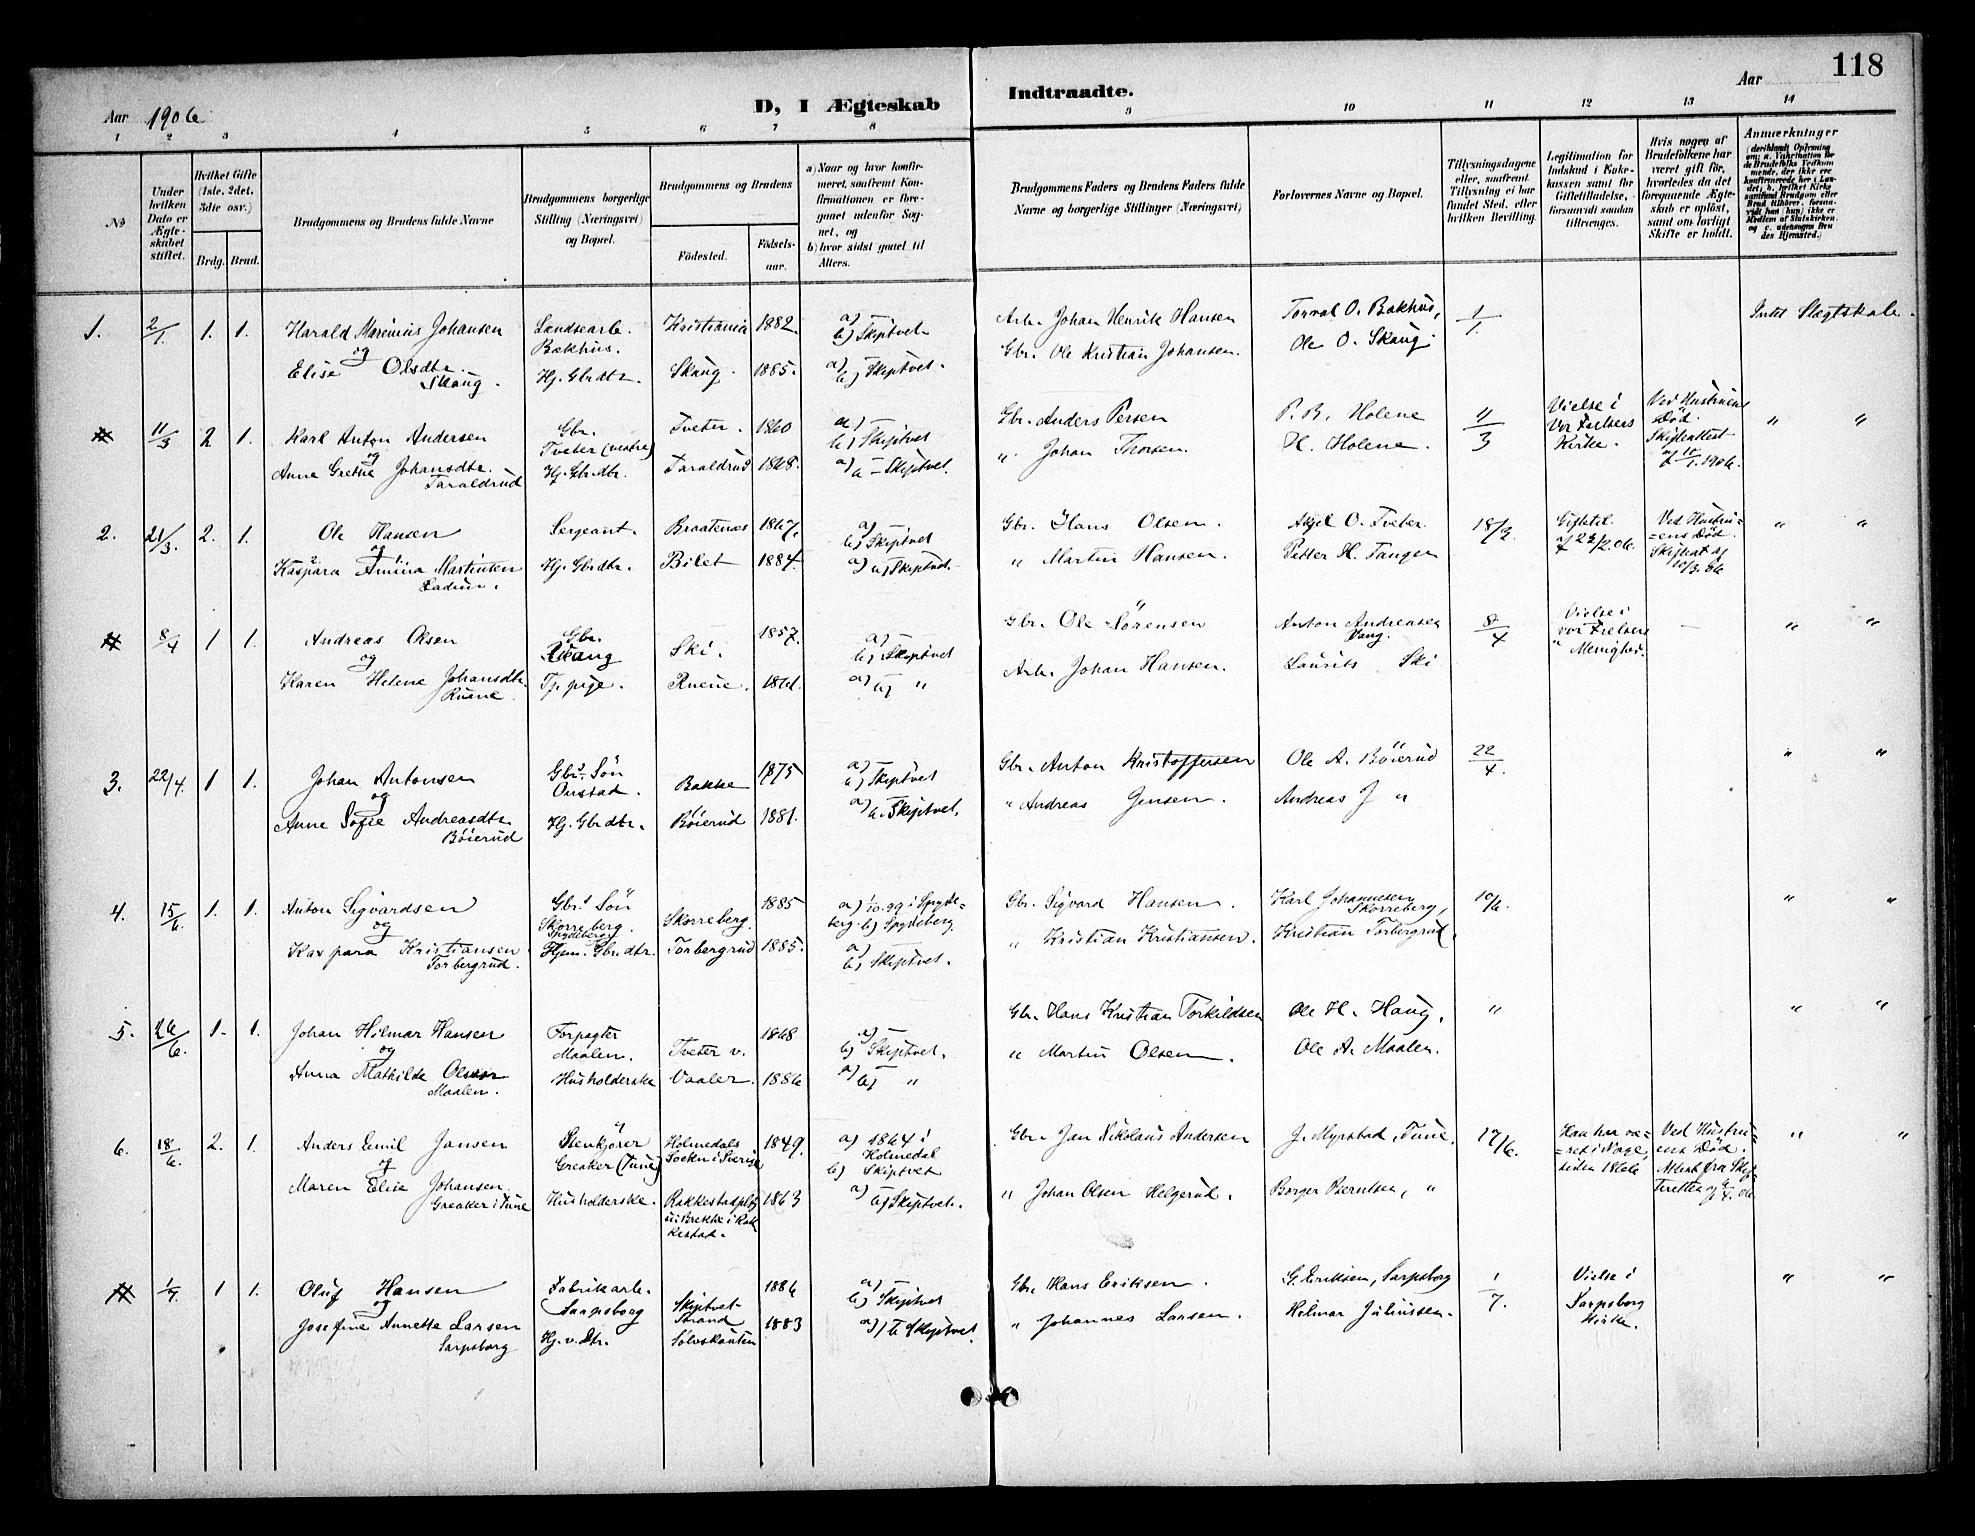 118
Aar 1906
D, I Ægteskab Indtraadte.
Aar
1 2 3 4 5 6 7 8 9 10 11 12 13 14
No
Under hvilken Dato er Ægteskabet stiftet.
Hvilket Gifte (1ste, 2det, 3die osv.)
Brdg. Brud.
Brudgommens og Brudens fulde Navne
Brudgommens borgerlige Stilling (Næringsvei) og Bopæl.
Brudgommens og Brudens
Fødested. Fødselsaar.
a) Naar og hvor konfirmeret, saafremt Konfirmationen er foregaaet udenfor Sognet, og
b) hvor sidst gaaet til Alters.
Brudgommens Faders og Brudens Faders fulde Navne og borgerlige Stillinger (Næringsvei)
Forlovernes Navne og Bopæl.
Tillysningsdagene eller, saafremt Tillysning ei har fundet Sted, efter hvilken Bevilling.
Legitimation for Indskud i Enkekassen samt for Giftetilladelse, forsaavidt saadan tiltrænges.
Hvis nogen af Brudefolkene har været gift før, hvorledes da det foregaaende Ægteskab er opløst, samt om lovligt Skifte er holdt.
Anmærkninger
1. 2/1 1. 1. Harald Marinius Johansen Landsearb. Kristiania 1882. a) — Arb. Johan Henrik Hansen Torval O. Bakhus, 1/1 Intet Slægtskab.
og Bakhus. b) Skiptvet
Elise Olsdtr. Skaug. Hj. Gbrdtr. Skaug. 1885. a) — b) Skiptvet. Gbr. Ole Kristian Johansen. Ole O. Skaug.
11/3 2 1. Karl Anton Andersen Gbr. Tveter. 1860 a) — Gbr. Anders Persen P. B. Holene 11/3 Vielse i Vor Frelsers Kirke. Ved Hustruens Død. Skifteattest af 10/1 1906. " "
og Tveter (vestre) b) Skiptvet
Anne Grethe Johansdtr. Taraldrud Hj. Gbrdtr. Taraldrud 1868. a) — Skiptvet. " Johan Thorsen. H. Holene.
2. 21/3. 2. 1. Ole Hansen Sergeant. Braatenæs 1867. a) — b) Skiptvet Gbr. Hans Olsen. Axel O. Tveter. 18/3. Giftetil. af 22/2.06. Ved Hustruens Død. Skifteat af 10/3.06 " "
og
Kaspara Amina Martinsen Ladim. Hj. Gbrdtr. Bilet 1884. a) b) Skiptvet. " Martin Hansen. Petter H. Tangen
8/4 1 1. Andreas Olsen Gbr. Ski. 1857. a) — b) Skiptvet Gbr. Ole Sørensen Anton Andreasen Vang. 8/4 Vielse i vor Frelsers Menighed. — " "
og
Karen Helene Johansdtr. Ruene Tj. pige. Ruene. 1861. a) — b) " Arb. Johan Hansen. Laurits Ski
3. 22/4. 1 1. Johan Antonsen Gbr.s Søn Bakke 1875 a) — b) Skiptvet Gbr. Anton Kristoffersen Ole A. Böierud 22/4. " "
og Onstad.
Anne Sofie Andreasdtr. Böierud Hj. Gbrdtr. Böierud 1881. a) — b. Skiptvet. " Andreas Jensen. Andreas J "
4. 15/6. 1. 1. Anton Sigvardsen Gbr.s Søn Skorreberg. 1885 a) 1/10.99 i Spydeberg. b) Spydeberg Gbr. Sigvard Hansen. Karl Johannesen Skorreberg, 10/6. " "
og Skorreberg. Spydeberg
Kaspara Kristiansen Torbergrud. Hjem. Gbrdtr. Torbergrud 1885. a) — b) Skiptvet. " Kristian Kristiansen. Kristian Torbergrud.
5. 26/6. 1. 1. Johan Hilmar Hansen Forpagter Tveter v. 1868 a) — b) Skiptvet. Gbr. Hans Kristian Torkildsen Ole H. Haug. " " "
og Maalen.
Anna Mathilde Olsen Maalen. Husholderske Vaaler. 1886 a) — b) " " Martin Olsen. Ole A. Maalen.
6. 18/6. 2. 1. Anders Emil Jansen Stenkjører Holmedals Sockn i Sverige 1849. a) 1864 i Holmedal b) Skiptvet Gbr. Jan Nikolaus Andersen J. Myrstad, Tune. 17/6. Han har været i Norge, siden 1866 Ved Hustruens Død. Attest fra Skifteretten " "
og Greaker (Tune)
Maren Elise Johansen. Greaker i Tune Husholderske. Rakkestadplds u: Brekke i Rakkestad. 1863 a) — b) Skiptvet. " Johan Olsen Helgerud. Borger Berntsen, "
1/7. 1 1. Oluf Hansen Fabrikarb. Skiptvet Strand 1886 a) — b) Skiptvet Gbr. Hans Eriksen. G. Eriksen, Sarpsborg 1/7. Vielse i Sarpsborg Kirke. " "
og Sarpsborg
Josefine Annette Larsen Sarpsborg Hj. v. Dtr. Sølvskauten 1883 a) — b Skiptvet. " Johannes Larsen. Hilmar Juliussen.